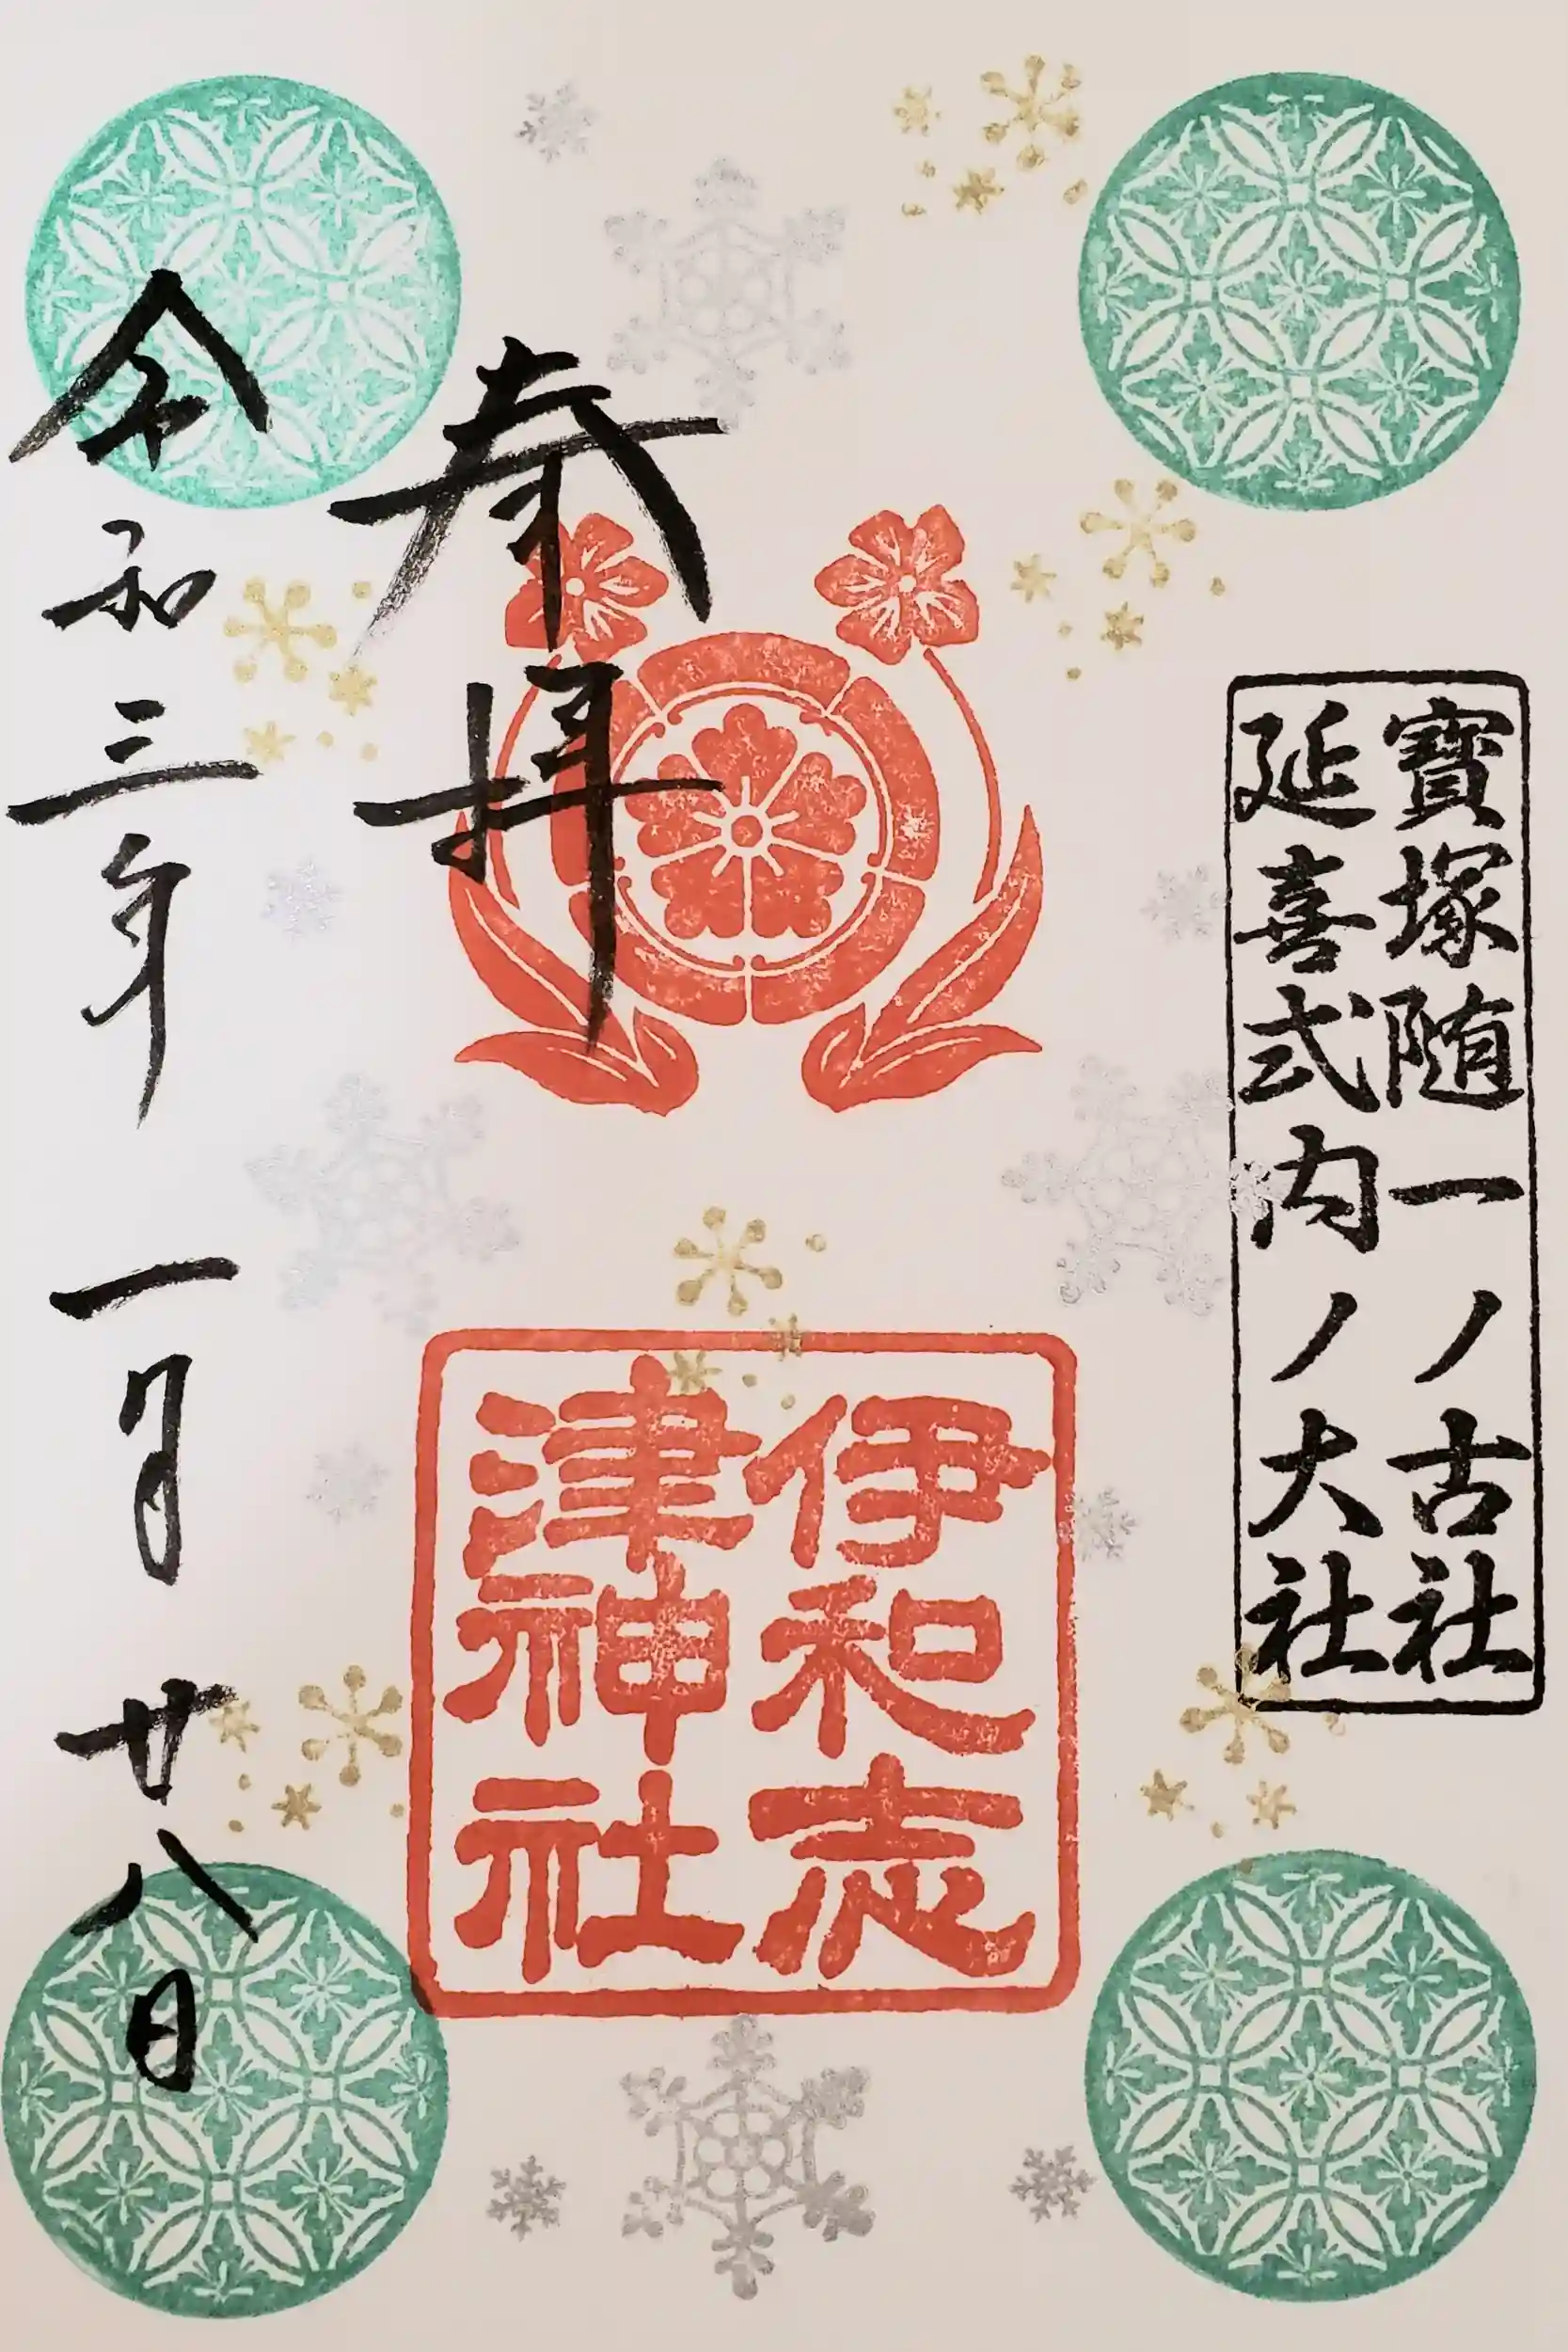 寶塚随一ノ古社
延喜式内ノ大社
奉拝
伊和志
津神社
令和三年 一月 廿八日